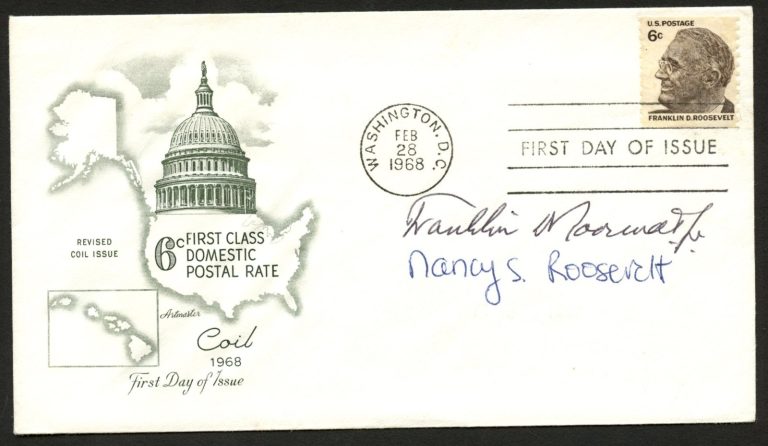 U.S. POSTAGE
6c
FRANKLIN D. ROOSEVELT
WASHINGTON, D.C.
FEB
28
1968
FIRST DAY OF ISSUE
REVISED
COIL ISSUE
6c FIRST CLASS
DOMESTIC
POSTAL RATE
Artmaster
Coil
1968
First Day of Issue
Franklin D Roosevelt, Jr.
Nancy S. Roosevelt